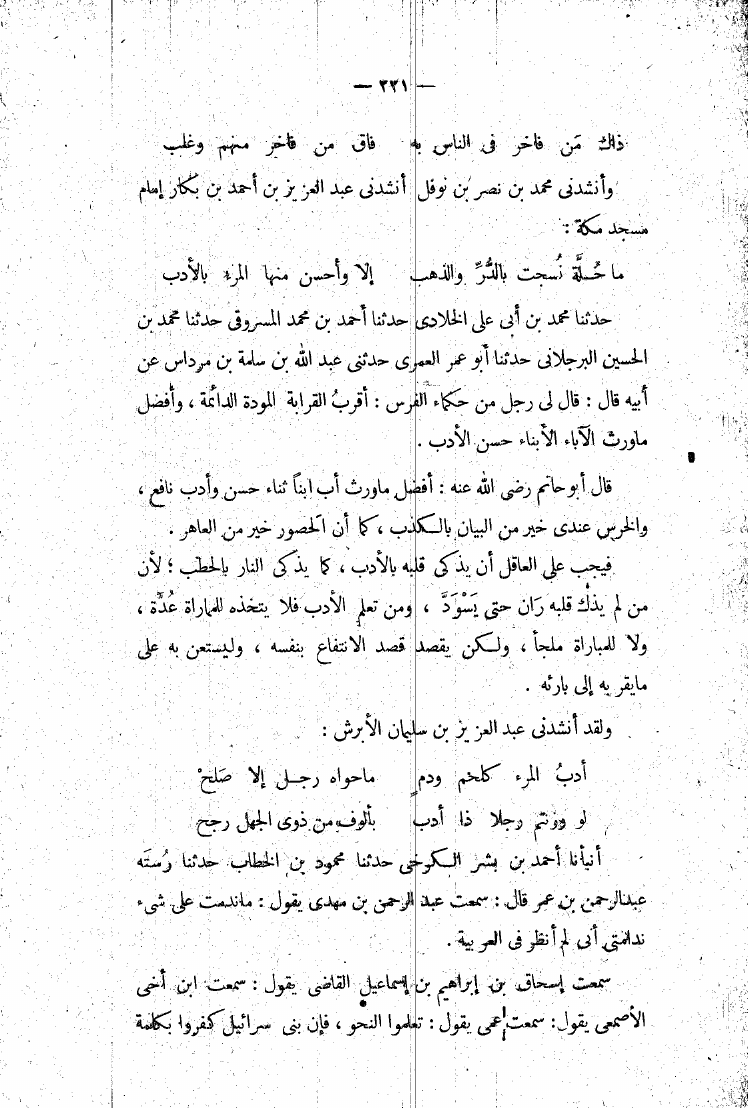 — ٢٢١ —
ذاك مَن فاخر فى الناس به فاق من فاخر منهم وغلب
وأنشدنى محمد بن نصر بن نوفل أنشدنى عبد العزيز بن أحمد بن بكار إمام
مسجد مكة :
ما حُلَّة نُسجت بالدُّرِّ والذهب إلا وأحسن منها المرء بالأدب
حدثنا محمد بن أبى على الخلادى حدثنا أحمد بن محمد المسروقى حدثنا محمد بن
الحسين البرجلانى حدثنا أبو عمر العمرى حدثنى عبد الله بن سلمة بن مرداس عن
أبيه قال : قال لى رجل من حكماء الفرس : أقربُ القرابة المودة الدائمة ، وأفضل
ماورث الآباء الأبناء حسن الأدب .
قال أبو حاتم رضى الله عنه : أفضل ماورث أب ابناً ثناء حسن وأدب نافع ،
والخرس عندى خير من البيان بالكذب ، كما أن الحصور خير من العاهر .
فيجب على العاقل أن يذكى قلبه بالأدب ، كما يذكى النار بالحطب ؛ لأن
من لم يذك قلبه رَان حتى يَسْوَدَّ ، ومن تعلم الأدب فلا يتخذه للمماراة عُدَّة ،
ولا للمباراة ملجأ ، ولكن يقصد قصد الانتفاع بنفسه ، وليستعن به على
مايقر به إلى بارئه .
ولقد أنشدنى عبد العزيز بن سليمان الأبرش :
أدبُ المرء كلحم ودم ماحواه رجل إلا صَلَحْ
لو وزنتم رجلا ذا أدب بألوف من ذوى الجهل رجح
أنبأنا أحمد بن بشر الكرخى حدثنا محمود بن الخطاب حدثنا رُسته
عبدالرحمن بن عمر قال : سمعت عبد الرحمن بن مهدى يقول : ماندمت على شىء
ندامتى أنى لم أنظر فى العربية .
سمعت إسحاق بن إبراهيم بن إسماعيل القاضى يقول : سمعت ابن أخى
الأصمعى يقول : سمعت عمى يقول : تعلموا النحو ، فإن بنى سرائيل كفروا بكلمة